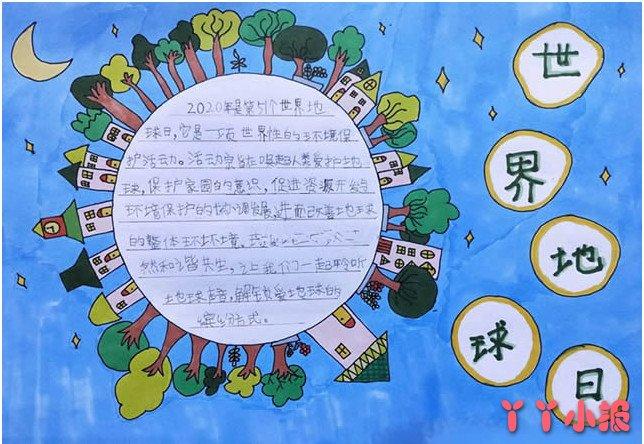 2020年是第51个世界地
球日,它是一项世界性的环境保
护活动。活动宗旨在唤起人类爱护地
球,保护家园的意识,促进资源开发与
环境保护的协调发展,进而改善地球
的整体环境。
然和谐共生,让我们一起聆听
地球声音,解锁热爱地球的
缤纷方式。
世
界
地
球
日
丫丫小报